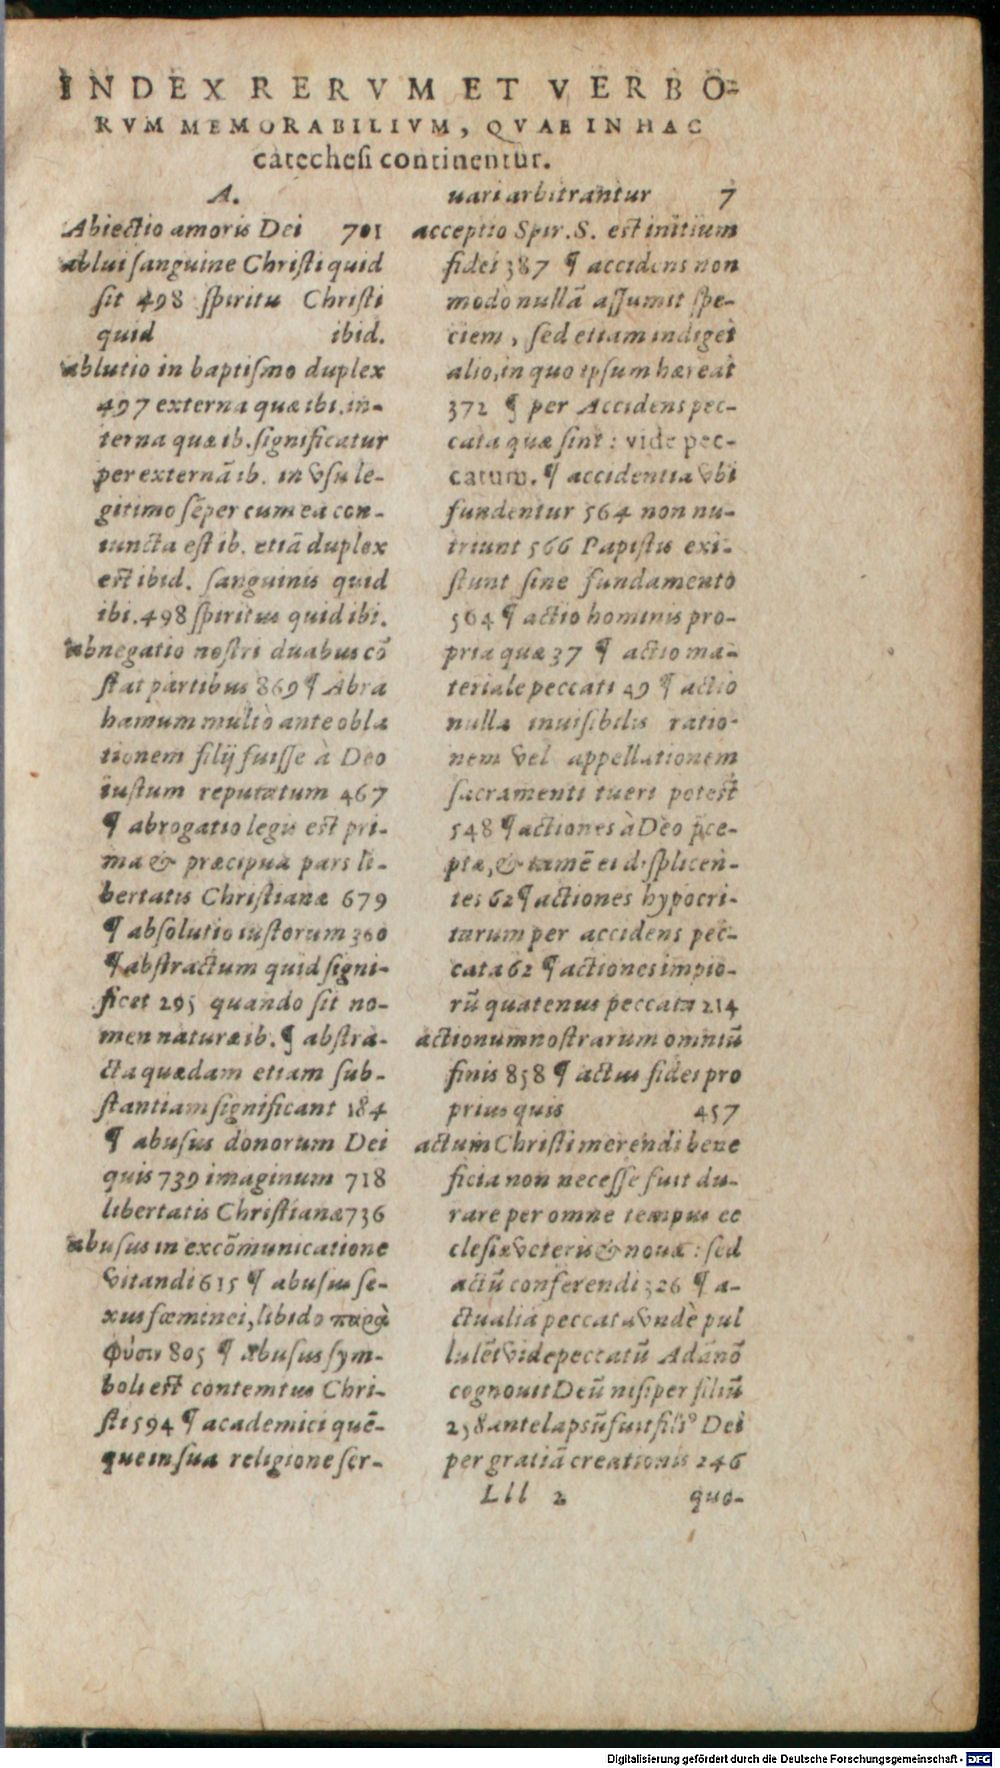 INDEX RERVM ET VERBO-
RVM MEMORABILIVM, QVAE IN HAC
catechesi continentur.
A.
Abiectio amoris Dei 701
ablui sanguine Christi quid
sit 498 spiritu Christi
quid ibid.
ablutio in baptismo duplex
497 externa quæ ibi. in-
terna quæ ib. significatur
per externã ib. in vsu le-
gitimo sẽper cum ea con-
iuncta est ib. etiã duplex
est ibid. sanguinis quid
ibi. 498 spiritus quid ibi.
abnegatio nostri duabus cõ
stat partibus 869 ¶ Abra
hamum multò ante obla
tionem filij fuisse à Deo
iustum reputatum 467
¶ abrogatio legis est pri-
ma & præcipua pars li-
bertatis Christianæ 679
¶ absolutio iustorum 360
¶ abstractum quid signi-
ficet 295 quando sit no-
men naturæ ib. ¶ abstra-
cta quædam etiam sub-
stantiam significant 184
¶ abusus donorum Dei
quis 739 imaginum 718
libertatis Christianæ 736
abusus in excõmunicatione
vitandi 615 ¶ abusus se-
xus fœminei, libido παρὰ
φύσιν 805 ¶ abusus sym-
boli est contemtus Chri-
sti 594 ¶ academici quẽ-
que in sua religione ser-
uari arbitrantur 7
acceptio Spir. S. est initium
fidei 387 ¶ accidens non
modò nullã assumit spe-
ciem, sed etiam indiget
alio, in quo ipsum hæreat
372 ¶ per Accidens pec-
cata quæ sint: vide pec-
catum. ¶ accidentia vbi
fundentur 564 non nu-
triunt 566 Papistis exi-
stunt sine fundamento
564 ¶ actio hominis pro-
pria quæ 37 ¶ actio ma-
teriale peccati 49 ¶ actio
nulla inuisibilis ratio-
nem vel appellationem
sacramenti tueri potest
548 ¶ actiones à Deo p̃ce-
ptæ, & tamẽ ei displicen-
tes 62 ¶ actiones hypocri-
tarum per accidens pec-
cata 62 ¶ actiones impio-
rũ quatenus peccata 214
actionum nostrarum omniũ
finis 858 ¶ actus fidei pro
prius quis 457
actum Christi merendi bene
ficia non necesse fuit du-
rare per omne tempus ec
clesiæ veteris & nouæ: sed
actũ conferendi 326 ¶ a-
ctualia peccata vndè pul
lulẽt vide peccatũ Adã nõ
cognouit Deũ nisi per filiũ
258 ante lapsũ fuit fili⁹ Dei
per gratiã creationis 246
Lll 2 quo-
Digitalisierung gefördert durch die Deutsche Forschungsgemeinschaft - DFG